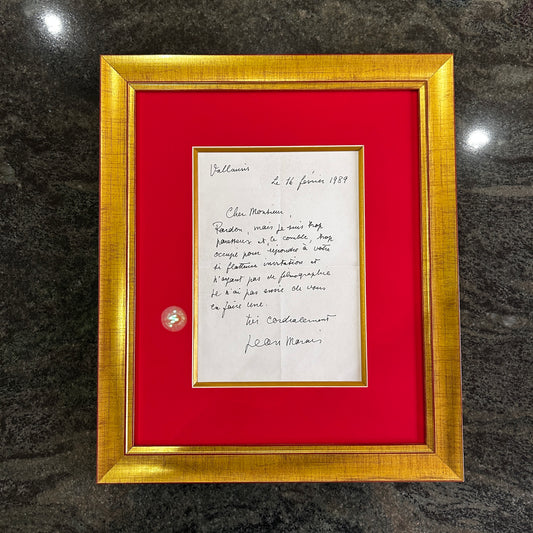 Vallauris
Le 16 février 1989
Cher Monsieur,
Pardon, mais je suis trop
paresseux et, le comble, trop
occupé pour répondre à votre
si flatteuse invitation et
n'ayant pas de filmographie
je n'ai pas envie de vous
en faire une.
très cordialement
Jean Marais